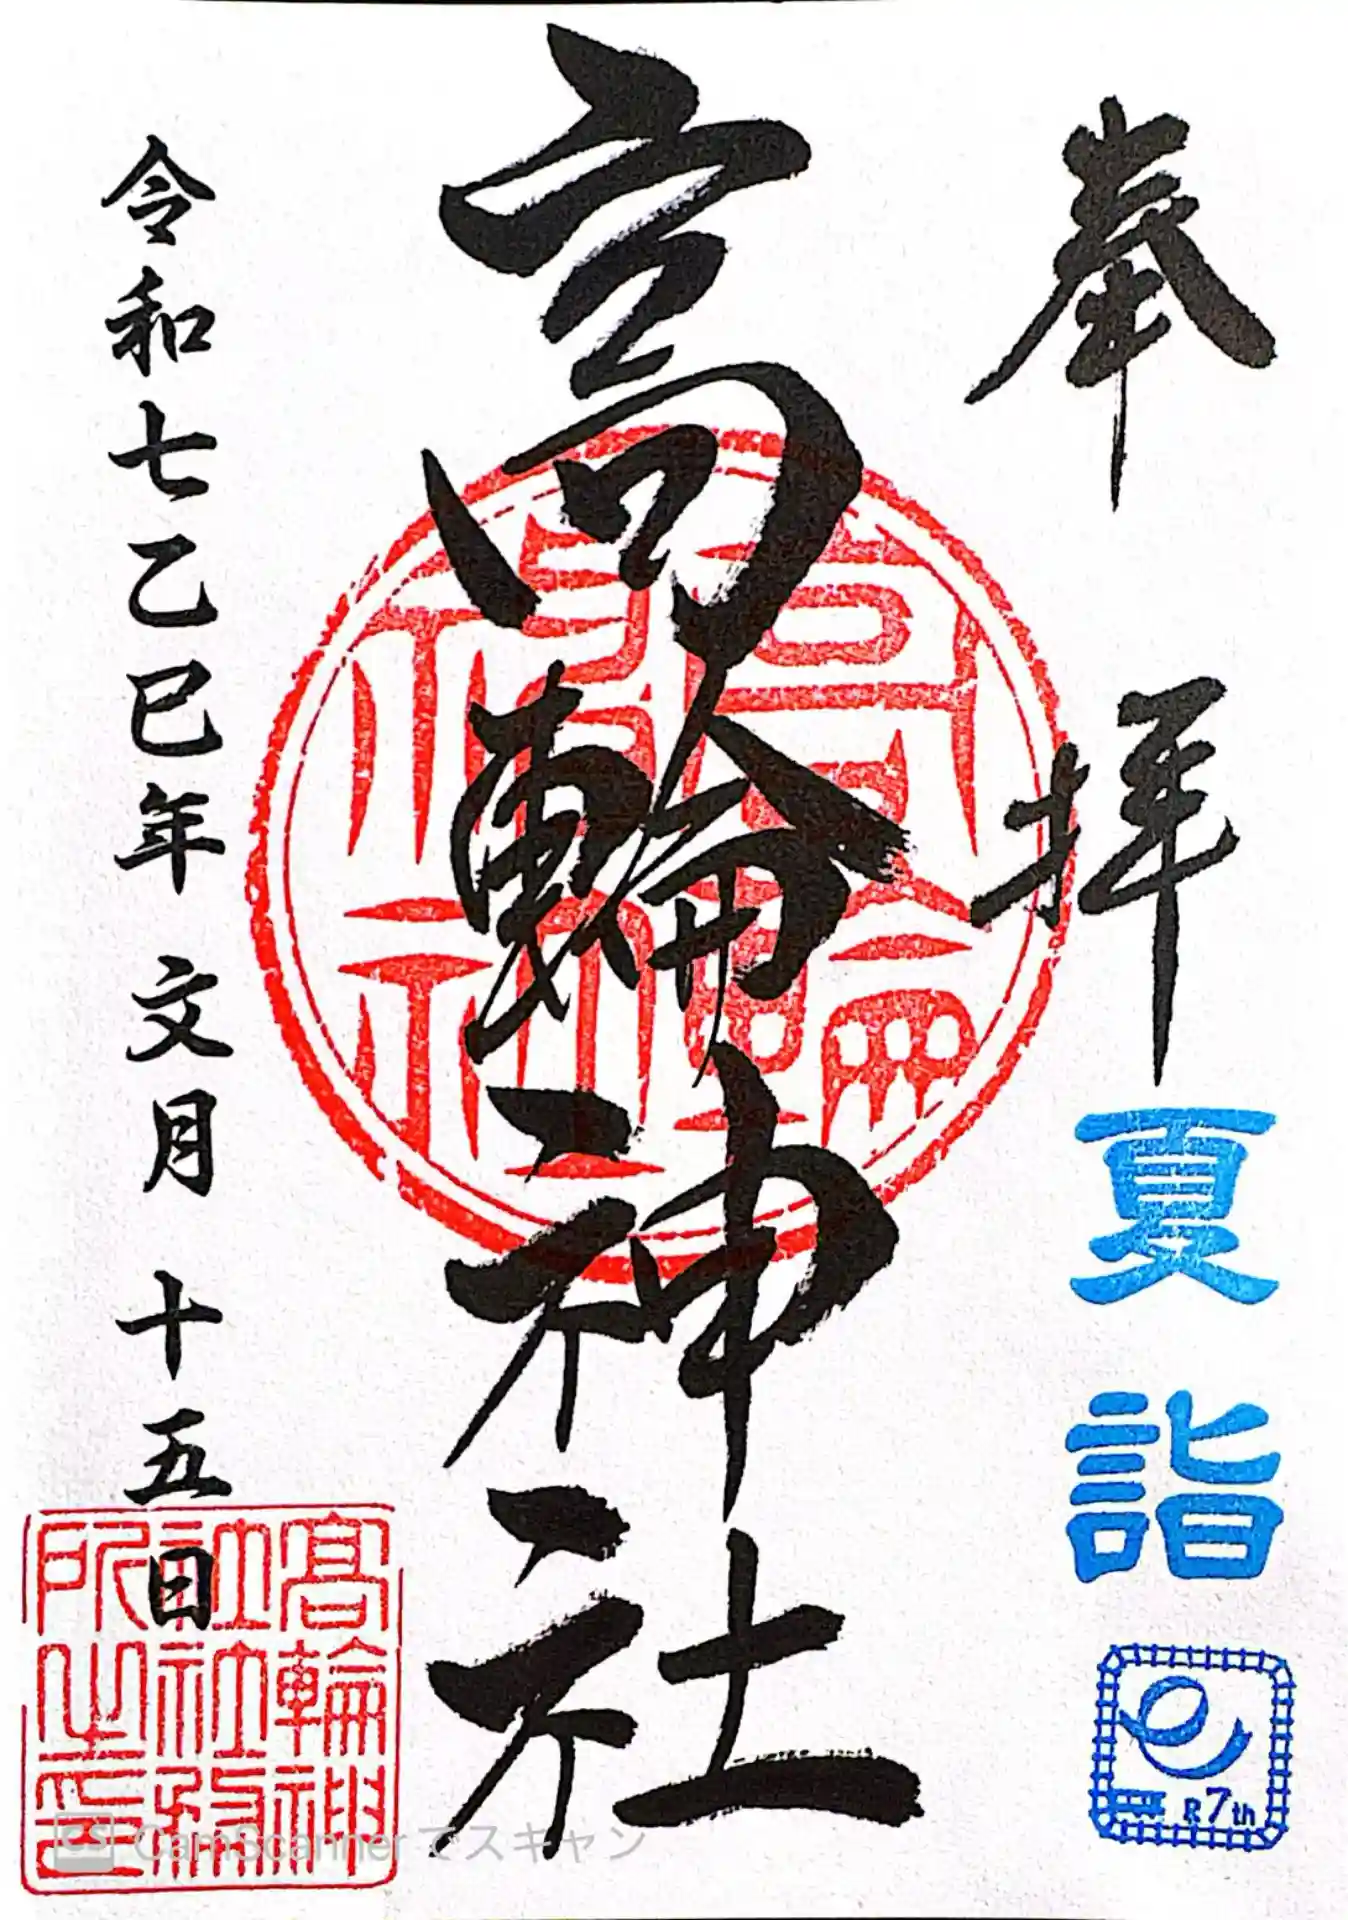 奉拝
夏詣
R7th
高輪神社
高輪神
社社務
所之印
令和七乙巳年 文月 十五日
CS CamScanner でスキャン